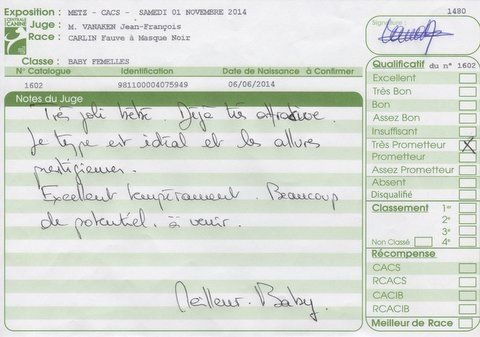 CENTRALE
CANINE
Exposition : METZ - CACS - SAMEDI 01 NOVEMBRE 2014
Juge : M. VANAKEN Jean-François
Race : CARLIN Fauve à Masque Noir
Classe : BABY FEMELLES
N° Catalogue Identification Date de Naissance à Confirmer
1602 981100004075949 06/06/2014
Notes du Juge
Très joli bébé. Déjà très attractive.
Le type est idéal et les allures
prestigieuses.
Excellent tempérament. Beaucoup
de potentiel. à venir.
Meilleur Baby.
1480
Signature :
Qualificatif du n° 1602
Excellent
Très Bon
Bon
Assez Bon
Insuffisant
Très Prometteur X
Prometteur
Assez Prometteur
Absent
Disqualifié
Classement 1er
2e
3e
Non Classé 4e
Récompense
CACS
RCACS
CACIB
RCACIB
Meilleur de Race